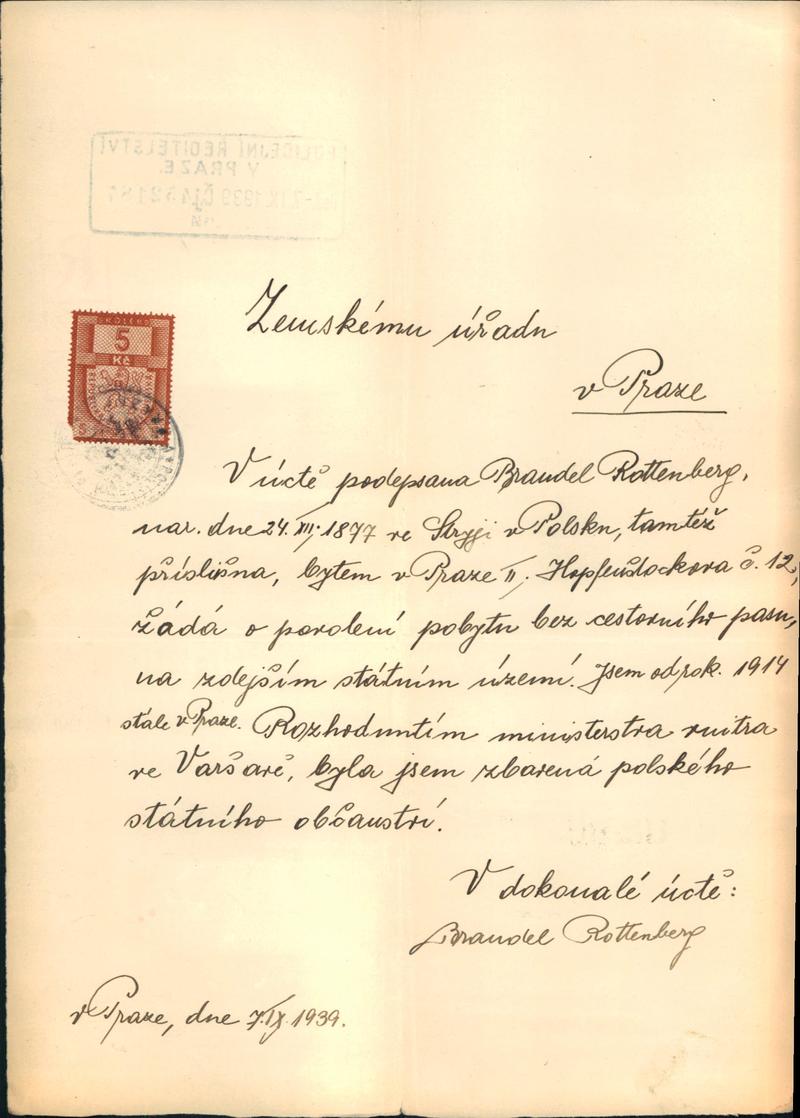 POLICEJNÍ ŘEDITELSTVÍ
V PRAZE.
KOLEK
5
Kč
Zemskému úřadu
v Praze
V úctě podepsana Brandel Rottenberg,
nar. dne 24. XII. 1877 ve Stryji v Polsku, tamtéž
příslišna, bytem v Praze II. Hopfenštockova č. 12,
žádá o povolení pobytu bez cestovního pasu,
na zdejším státním území. Jsem od rok. 1914
stále v Praze. Rozhodnutím ministerstva vnitra
ve Varšavě, byla jsem zbavená polského
státního občanství.
V dokonalé úctě:
Brandel Rottenberg
v Praze, dne 7.IX.1939.